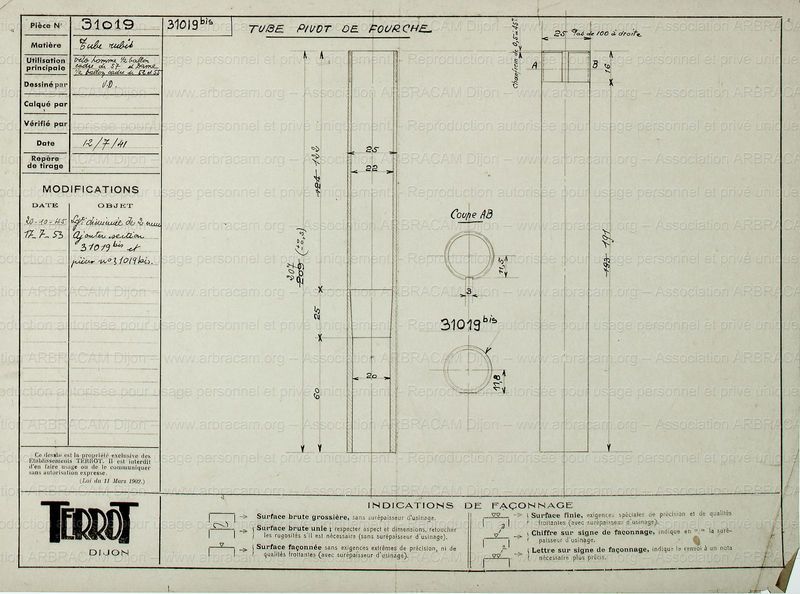 Pièce N° 31019
31019 bis
TUBE PIVOT DE FOURCHE
Matière Tube rubis
Utilisation principale Vélo homme 1/2 ballon
cadre de 57 et Dame
1/2 ballon cadre de 52 et 55
Dessiné par V.D.
Calqué par
Vérifié par
Date 12/7/41
Repère de tirage
MODIFICATIONS
DATE OBJET
20-10-45 Lgr diminuée de 2 mm
17-7-53 Ajouter section
31019 bis et
pièce n° 31019 bis.
Ce dessin est la propriété exclusive des
Etablissements TERROT. Il est interdit
d'en faire usage ou de le communiquer
sans autorisation expresse.
(Loi du 11 Mars 1902.)
TERROT
DIJON
25
22
124 122
207
209 (±0,5)
25
60
20
Chanfrein de 0,5 à 45°
25 Pas de 100 à droite
A
B
16
193 191
Coupe AB
11,5
3
31019 bis
11,8
INDICATIONS DE FAÇONNAGE
Surface brute grossière, sans surépaisseur d'usinage.
Surface brute unie; respecter aspect et dimensions, retoucher
les rugosités s'il est nécessaire (sans surépaisseur d'usinage).
Surface façonnée sans exigences extrêmes de précision, ni de
qualités frottantes (avec surépaisseur d'usinage).
Surface finie, exigences spéciales de précision et de qualités
frottantes (avec surépaisseur d'usinage).
Chiffre sur signe de façonnage, indique en m/m la surépaisseur d'usinage.
Lettre sur signe de façonnage, indique le renvoi à un nota
nécessaire plus précis.
www.arbracam.org – Association ARBRACAM Dijon – Reproduction autorisée pour usage personnel et privé uniquement